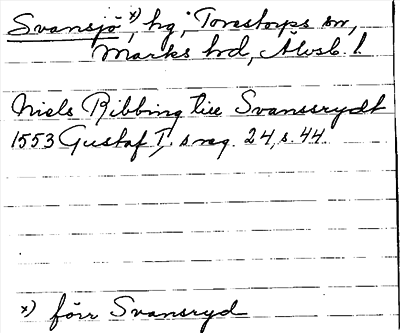 Svansjö x), hg, Torestorps sn,
Marks hd, Älvsb. l.
Niels Ribbing till Svanssrydt
1553 Gustaf I, s reg. 24, s. 44.
x) förr Svansryd